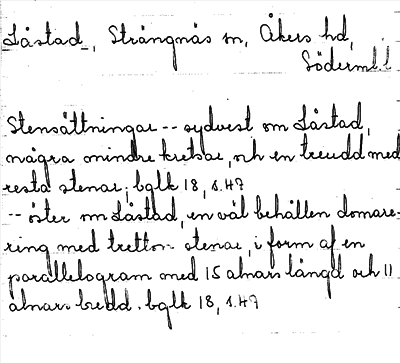 Låstad, Strängnäs sn, Åkers hd,
Söderml.l
Stensättningar -- sydvest om Låstad,
några mindre kretsar, och en treudd med
resta stenar; bglk 18, s.47
-- öster om Låstad, en väl behållen domare-
ring med tretton stenar, i form af en
parallelogram med 15 alnars längd och 11
alnars bredd. bglk 18, s.47